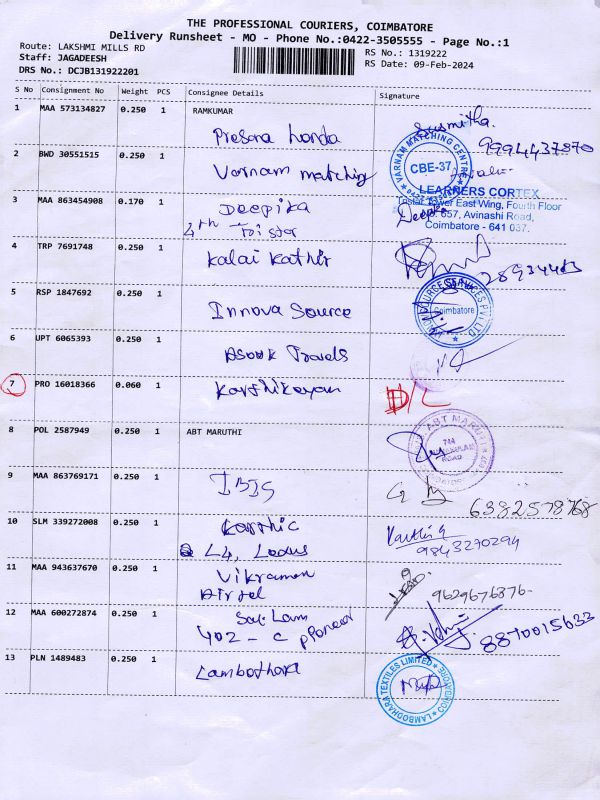 THE PROFESSIONAL COURIERS, COIMBATORE
Delivery Runsheet - MO - Phone No.:0422-3505555 - Page No.:1
Route: LAKSHMI MILLS RD
RS No.: 1319222
Staff: JAGADEESH
RS Date: 09-Feb-2024
DRS No.: DCJB131922201
S No Consignment No Weight PCS Consignee Details Signature
1 MAA 573134827 0.250 1 RAMKUMAR
Susmitha.
Presana honda 9994437870
2 BWD 30551515 0.250 1
Varnam matching
VARNAM MATCHING CENTRE
CBE-37
3 MAA 863454908 0.170 1 Deepika Deepika
4th
LEARNERS CORTEX
Tower East Wing, Fourth Floor
657, Avinashi Road,
Coimbatore - 641 037.
4 TRP 7691748 0.250 1
Kalai Kathir
5 RSP 1847692 0.250 1
Innova Source
Coimbatore
6 UPT 6065393 0.250 1
Asook Travels
7 PRO 16018366 0.060 1 Karthikeyan D/L
8 POL 2587949 0.250 1 ABT MARUTHI
ABT MARUTHI
744
ROAD
9 MAA 863769171 0.250 1
IBIS
6382578768
10 SLM 339272008 0.250 1 Karthic
L4, Karthic
9843270294
11 MAA 943637670 0.250 1 Vikraman
Airtel 9629676376-
12 MAA 600272874 0.250 1 Sai Ram
402 - C 8870015633
13 PLN 1489483 0.250 1
Lambothara
LAMBODHARA TEXTILES LIMITED
COIMBATORE